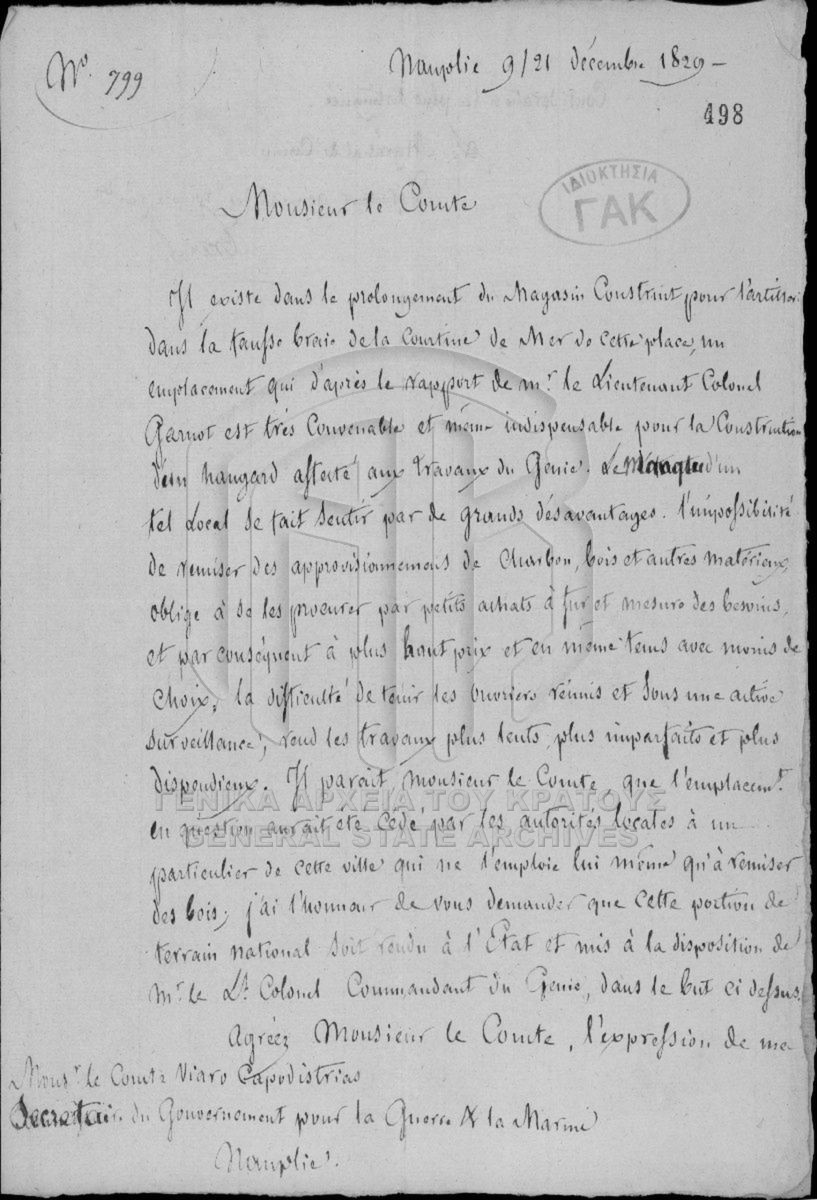 Nº 799
Nauplie 9/21 décembre 1829 –
498
ΙΔΙΟΚΤΗΣΙΑ
ΓΑΚ
Monsieur le Comte
Il existe dans le prolongement du Magasin Construit pour l'artillerie
dans la fausse braie de la Courtine de Mer de cette place, un
emplacement qui d'après le rapport de mr. le Lieutenant Colonel
Garnot est très Convenable et même indispensable pour la Construction
d'un hangard affecté aux travaux du Genie. Le manque d'un
tel Local se fait sentir par de grands désavantages. l'impossibilité
de remiser des approvisionnemens de Charbon, bois et autres matériaux,
oblige à se les procurer par petits achats à fur et mesure des besoins,
et par conséquent à plus haut prix et en même tems avec moins de
Choix, la difficulté de tenir les ouvriers réunis et sous une active
surveillance, rend les travaux plus lents, plus imparfaits et plus
dispendieux. Il parait, monsieur le Comte, que l'emplacemt.
en question aurait été cédé par les autorités locales à un
particulier de cette ville qui ne l'emploie lui même qu'à remiser
des bois; j'ai l'honneur de vous demander que cette portion de
terrain national soit rendu à l'Etat et mis à la disposition de
mr. le Lt. Colonel Commandant du Genie, dans le but ci dessus.
Agréez Monsieur le Comte, l'expression de ma
Monsr. le Comte Viaro Capodistrias
Secretaire du Gouvernement pour la Guerre & la Marine
Nauplie.
ΓΕΝΙΚΑ ΑΡΧΕΙΑ ΤΟΥ ΚΡΑΤΟΥΣ
GENERAL STATE ARCHIVES